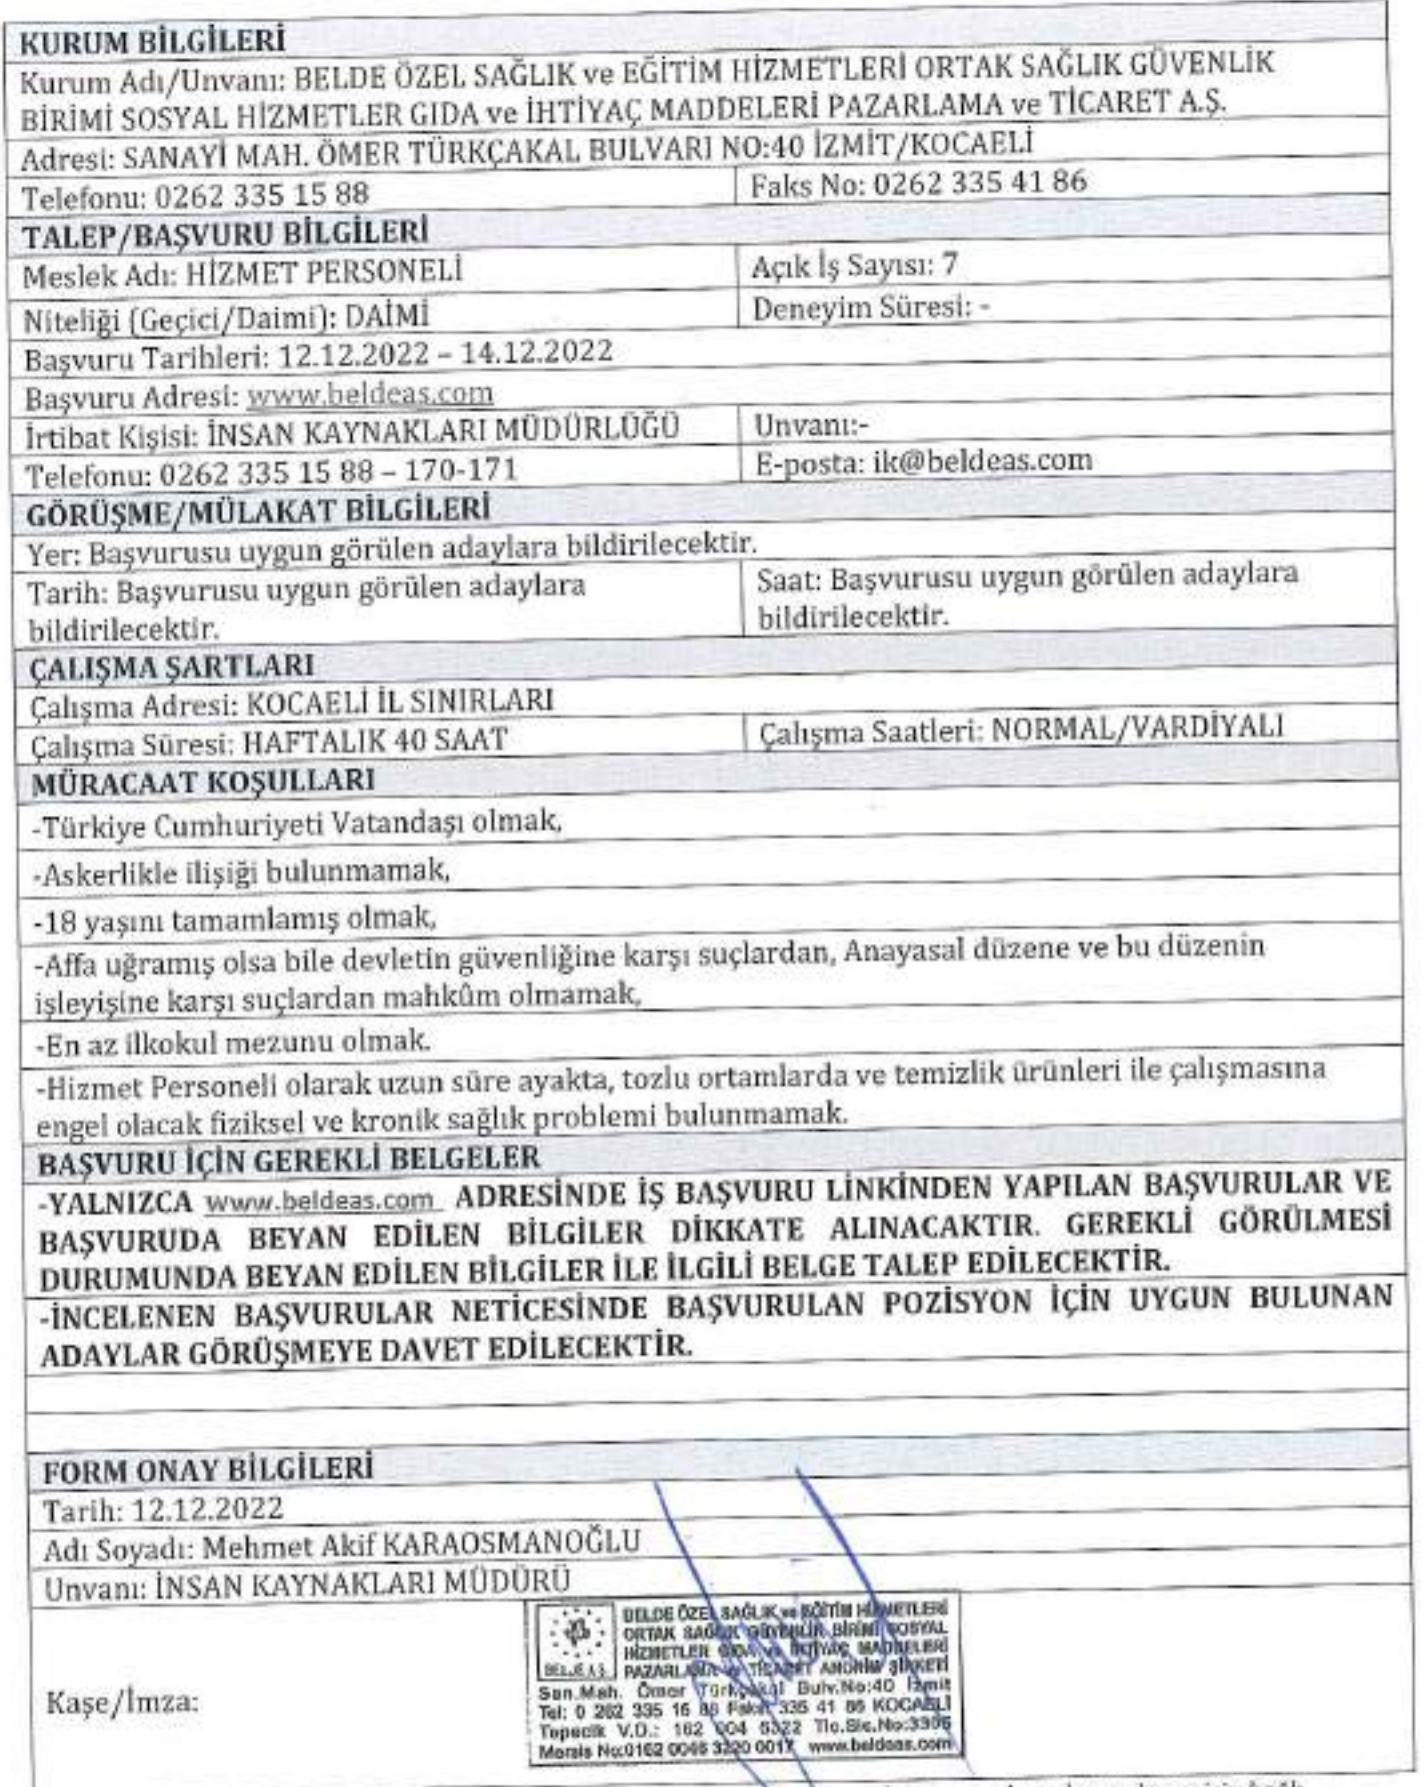 KURUM BİLGİLERİ
Kurum Adı/Unvanı: BELDE ÖZEL SAĞLIK ve EĞİTİM HİZMETLERİ ORTAK SAĞLIK GÜVENLİK
BİRİMİ SOSYAL HİZMETLER GIDA ve İHTİYAÇ MADDELERİ PAZARLAMA ve TİCARET A.Ş.
Adresi: SANAYİ MAH. ÖMER TÜRKÇAKAL BULVARI NO:40 İZMİT/KOCAELİ
Telefonu: 0262 335 15 88 Faks No: 0262 335 41 86
TALEP/BAŞVURU BİLGİLERİ
Meslek Adı: HİZMET PERSONELİ Açık İş Sayısı: 7
Niteliği (Geçici/Daimi): DAİMİ Deneyim Süresi: -
Başvuru Tarihleri: 12.12.2022 – 14.12.2022
Başvuru Adresi: www.beldeas.com
İrtibat Kişisi: İNSAN KAYNAKLARI MÜDÜRLÜĞÜ Unvanı:-
Telefonu: 0262 335 15 88 – 170-171 E-posta: ik@beldeas.com
GÖRÜŞME/MÜLAKAT BİLGİLERİ
Yer: Başvurusu uygun görülen adaylara bildirilecektir.
Tarih: Başvurusu uygun görülen adaylara
bildirilecektir.
Saat: Başvurusu uygun görülen adaylara
bildirilecektir.
ÇALIŞMA ŞARTLARI
Çalışma Adresi: KOCAELİ İL SINIRLARI
Çalışma Süresi: HAFTALIK 40 SAAT Çalışma Saatleri: NORMAL/VARDİYALI
MÜRACAAT KOŞULLARI
-Türkiye Cumhuriyeti Vatandaşı olmak,
-Askerlikle ilişiği bulunmamak,
-18 yaşını tamamlamış olmak,
-Affa uğramış olsa bile devletin güvenliğine karşı suçlardan, Anayasal düzene ve bu düzenin
işleyişine karşı suçlardan mahkûm olmamak,
-En az ilkokul mezunu olmak.
-Hizmet Personeli olarak uzun süre ayakta, tozlu ortamlarda ve temizlik ürünleri ile çalışmasına
engel olacak fiziksel ve kronik sağlık problemi bulunmamak.
BAŞVURU İÇİN GEREKLİ BELGELER
-YALNIZCA www.beldeas.com ADRESİNDE İŞ BAŞVURU LİNKİNDEN YAPILAN BAŞVURULAR VE
BAŞVURUDA BEYAN EDİLEN BİLGİLER DİKKATE ALINACAKTIR. GEREKLİ GÖRÜLMESİ
DURUMUNDA BEYAN EDİLEN BİLGİLER İLE İLGİLİ BELGE TALEP EDİLECEKTİR.
-İNCELENEN BAŞVURULAR NETİCESİNDE BAŞVURULAN POZİSYON İÇİN UYGUN BULUNAN
ADAYLAR GÖRÜŞMEYE DAVET EDİLECEKTİR.
FORM ONAY BİLGİLERİ
Tarih: 12.12.2022
Adı Soyadı: Mehmet Akif KARAOSMANOĞLU
Unvanı: İNSAN KAYNAKLARI MÜDÜRÜ
Kaşe/İmza:
BELDE A.Ş.
BELDE ÖZEL SAĞLIK ve EĞİTİM HİZMETLERİ
ORTAK SAĞLIK GÜVENLİK BİRİMİ SOSYAL
HİZMETLER GIDA ve İHTİYAÇ MADDELERİ
PAZARLAMA ve TİCARET ANONİM ŞİRKETİ
San.Mah. Ömer Türkçakal Bulv.No:40 İzmit
Tel: 0 262 335 15 88 Faks: 335 41 86 KOCAELİ
Tepecik V.D.: 162 004 Tic.Sic.No:
Mersis No:0162 0046 3220 0017 www.beldeas.com